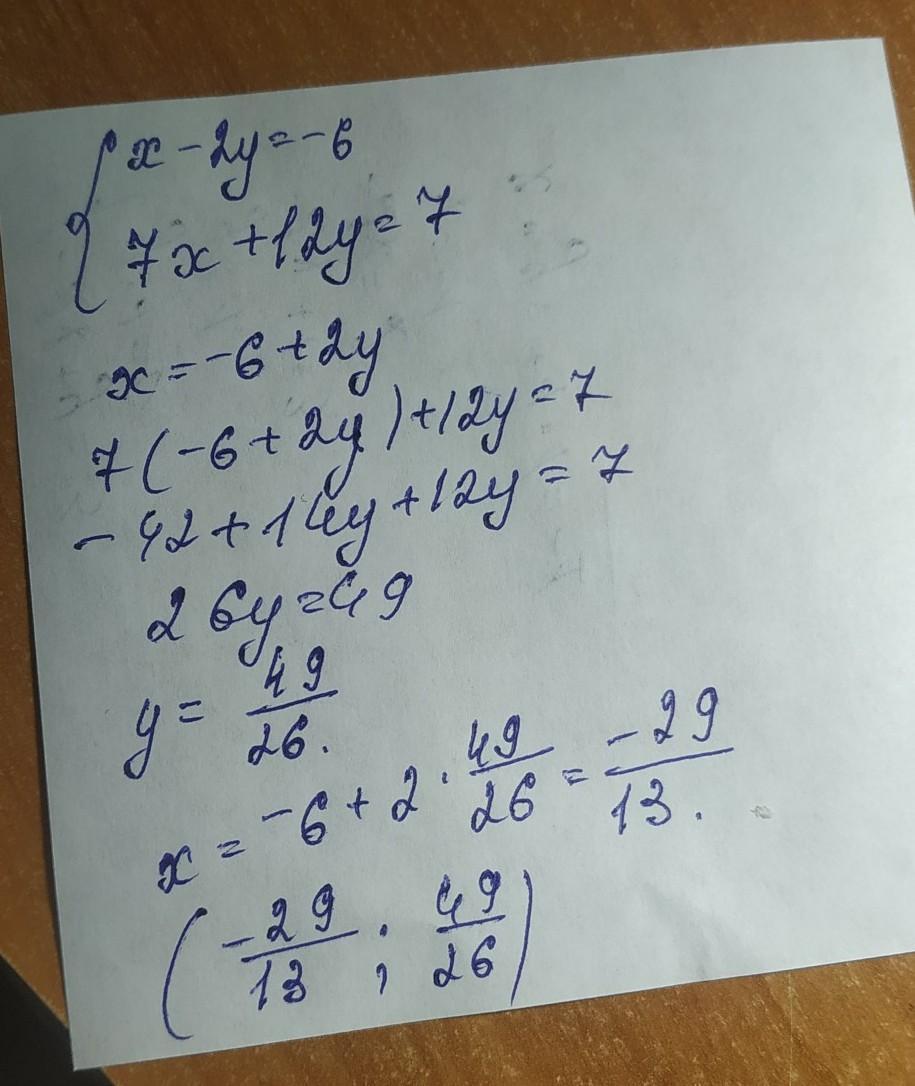 { x - 2y = -6
7x + 12y = 7
x = -6 + 2y
7(-6 + 2y) + 12y = 7
-42 + 14y + 12y = 7
26y = 49
y = 49/26.
x = -6 + 2 · 49/26 = -29/13.
(-29/13 ; 49/26)